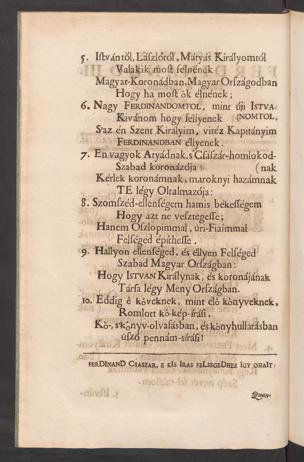 5. Istvántól, Lászlótól, Mátyás Királyomtól
Valakik most félnének
Magyar-Koronádban, Magyar Országodban
Hogy ha most ők élnének;
6. Nagy FERDINANDOMTOL, mint új ISTVA-
Kivánom hogy féllyenek (NOMTOL,
S'az én Szent Királyim, vitéz Kapitányim
FERDINANDBAN éllyenek.
7. Én vagyok Atyádnak, s Császár-homlokod-
Szabad koronázója (nak
Kérlek koronámnak, maroknyi hazámnak
TE légy Oltalmazója:
8. Szomszéd-ellenségem hamis békességem
Hogy azt ne vesztegesse;
Hanem Oszlopimmal, úri-Fiaimmal
Felséged épithesse.
9. Hallyon ellenséged, és éllyen Felséged
Szabad Magyar Országban:
Hogy ISTVAN Királynak, és koronájának
Társa légy Meny Országban.
10. Eddig è köveknek, mint élő könyveknek,
Romlott kö-kép-írási.
Kö-, s'könyv-olvasásban, és könyhullatásban
úszó pennám-sírási!
FERDINAND CSASZAR, E KIS IRAS FELSEGEDHEZ IGY OHAJT:
Quan-